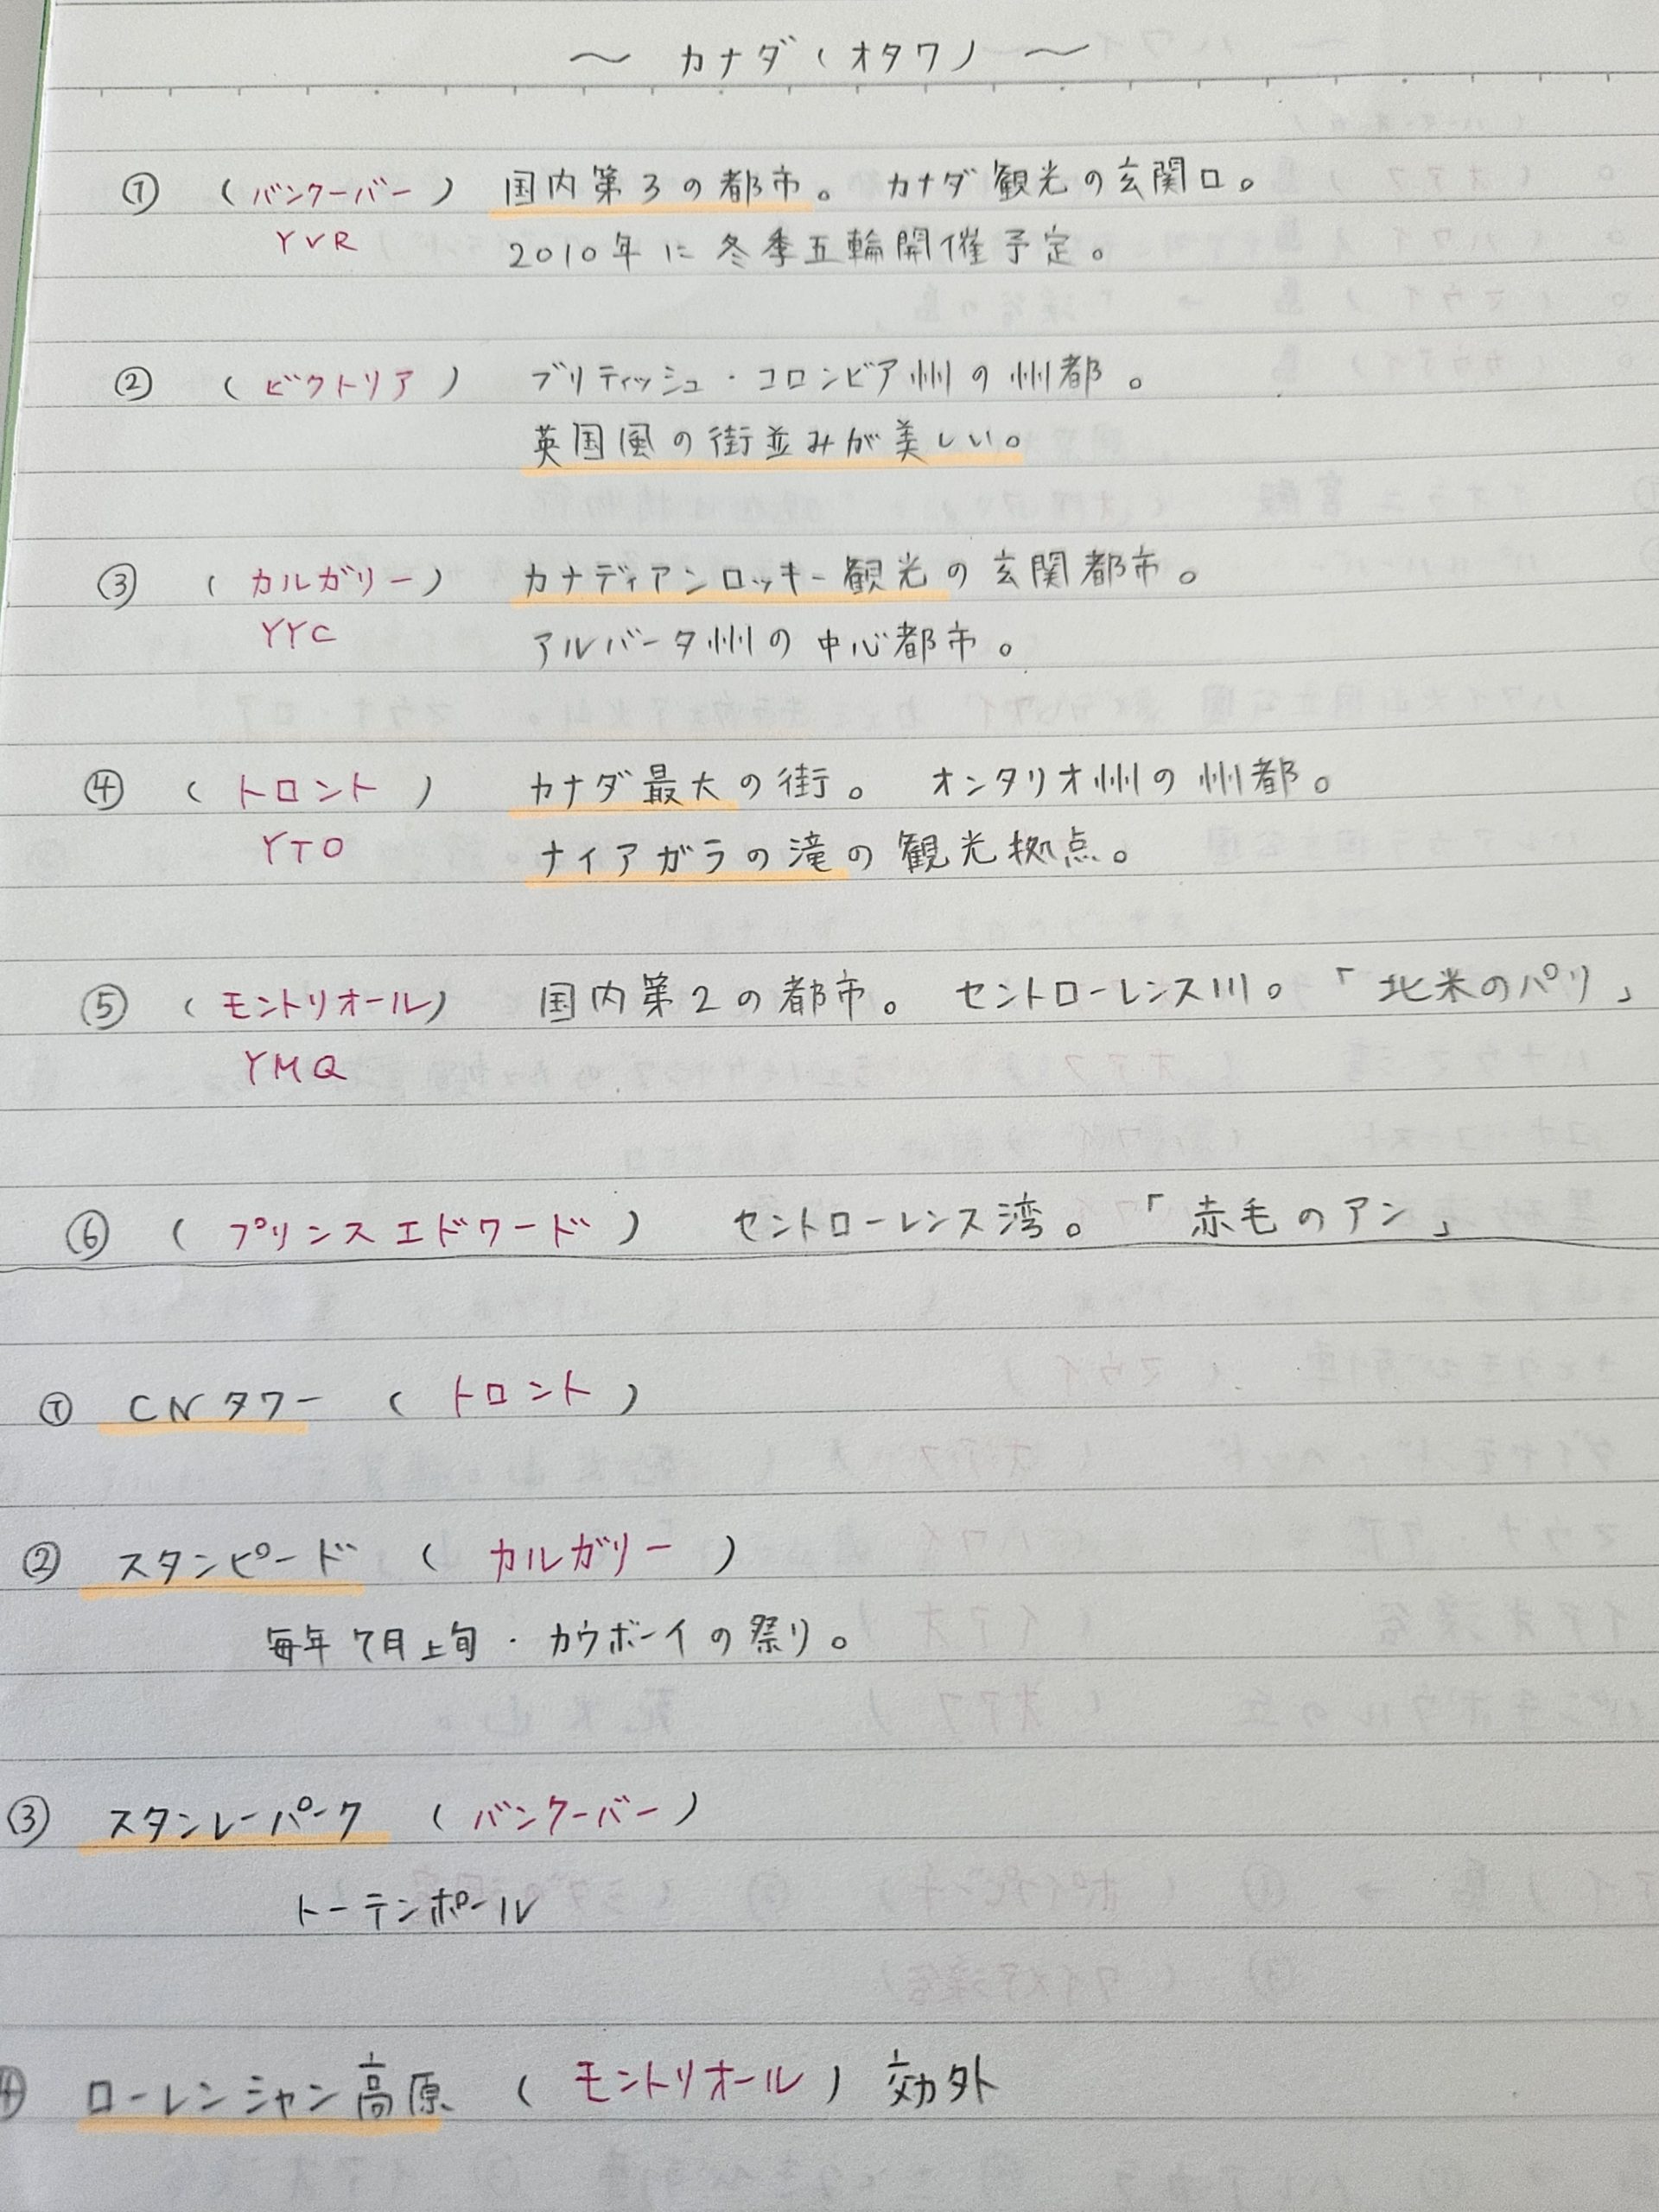 ～ カナダ（オタワ）～
① （バンクーバー） 国内第3の都市。 カナダ観光の玄関口。
YVR 2010年に冬季五輪開催予定。
② （ビクトリア） ブリティッシュ・コロンビア州の州都。
英国風の街並みが美しい。
③ （カルガリー） カナディアンロッキー観光の玄関都市。
YYC アルバータ州の中心都市。
④ （トロント） カナダ最大の街。 オンタリオ州の州都。
YTO ナイアガラの滝の観光拠点。
⑤ （モントリオール） 国内第2の都市。 セントローレンス川。「北米のパリ」
YMQ
⑥ （プリンスエドワード） セントローレンス湾。「赤毛のアン」
① CNタワー （トロント）
② スタンピード （カルガリー）
毎年7月上旬・カウボーイの祭り。
③ スタンレーパーク （バンクーバー）
トーテンポール
④ ローレンシャン高原 （モントリオール） 効外